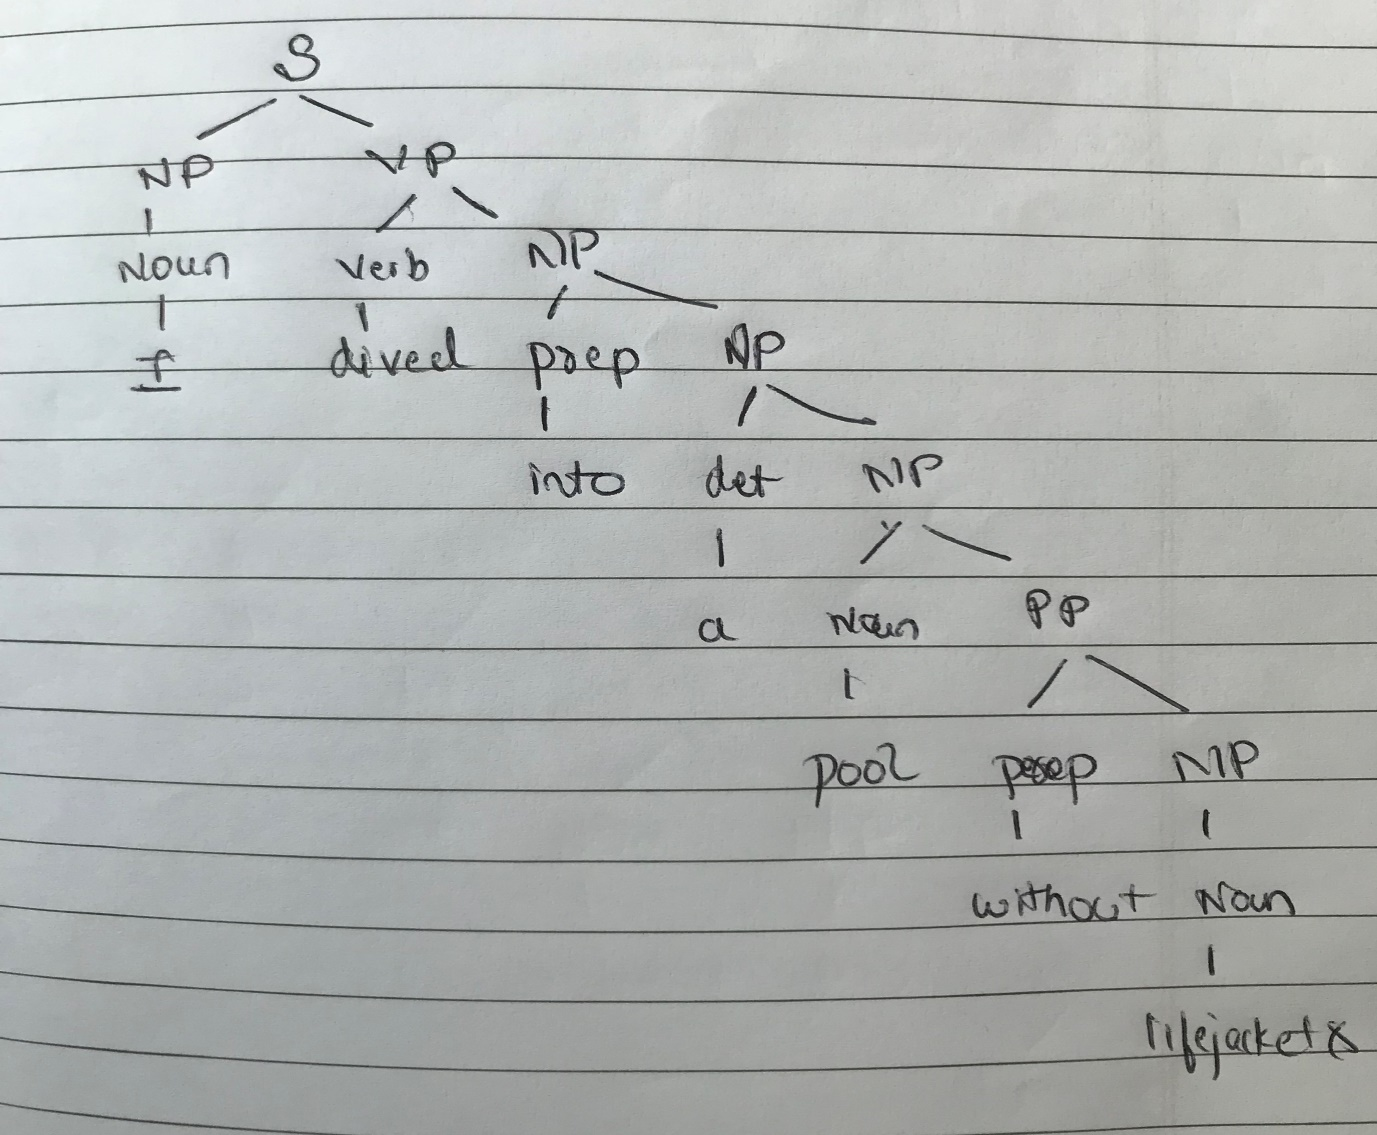 S
NP VP
Noun verb NP
I dived prep NP
into det NP
a Noun PP
pool prep NP
without Noun
lifejacket